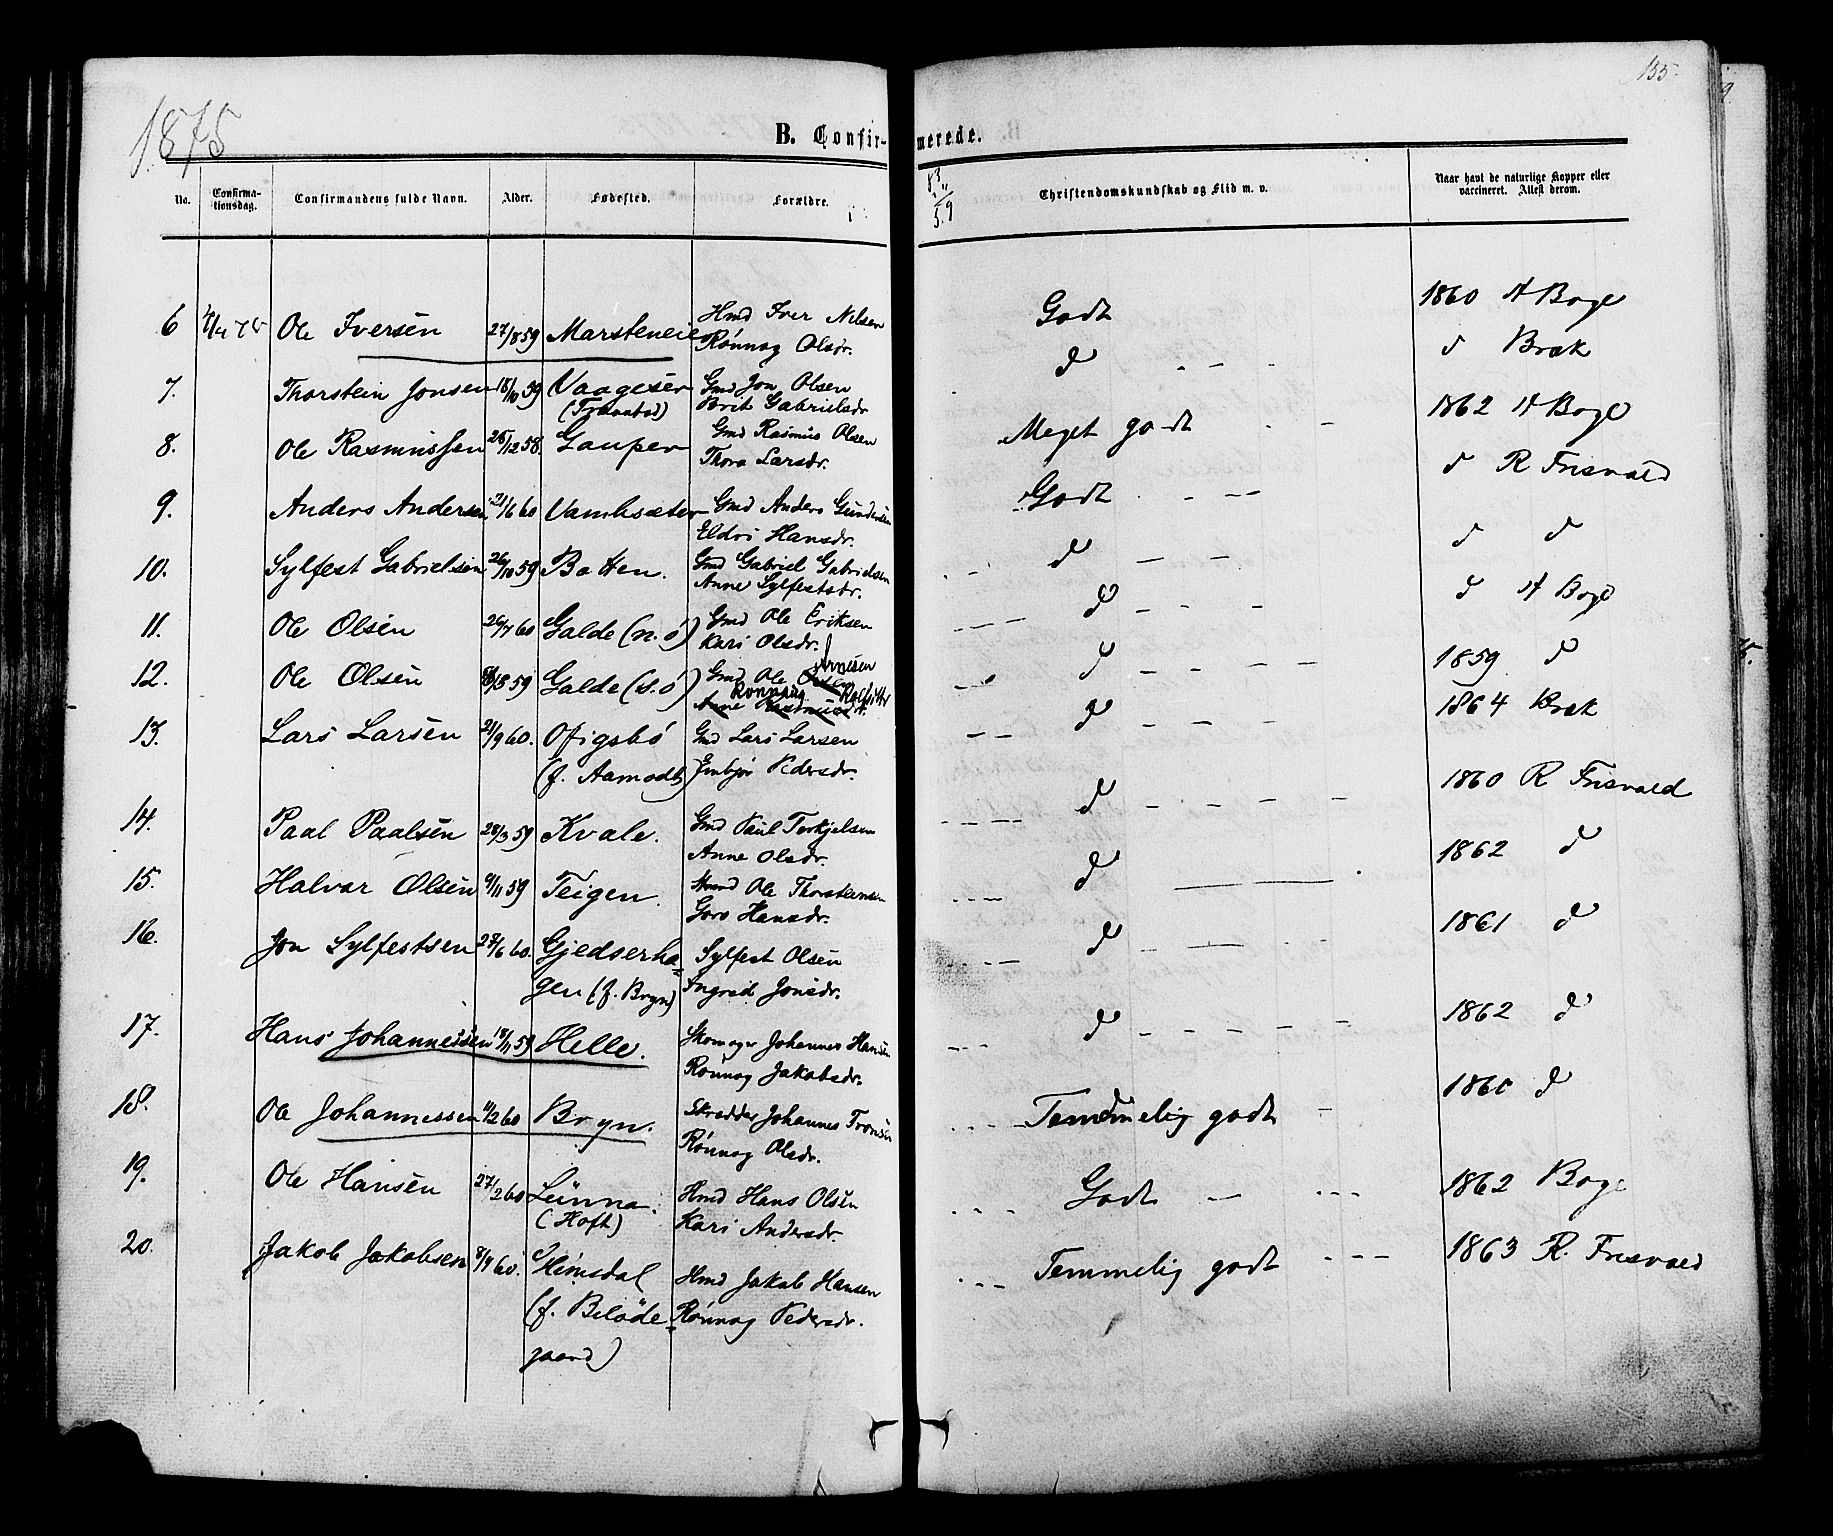 1875
155.
B. Confir-
merede.
No.
Confirma-
tionsdag.
Confirmandens fulde Navn.
Alder.
Fødested.
Forældre.
Christendomskundskab og Flid m. v.
Naar havt de naturlige Kopper eller
vaccineret. Attest derom.
6 Ole Iversen 27/8 59 Marsteneie Hmd Iver Nilsen
Rønnog Olsdr.
Godt 1860 A Boge
7. Thorstein Jonsen 18/10 59 Vaageser Gmd Jon Olsen
Brit Gabrielsdr
d d Bræk
8. Ole Rasmussen 26/12 58. Gauper Gmd Rasmus Olsen
Thora Larsdr.
Meget godt 1862 A Boge
9. Anders Andersen 21/6 60 Vamhsæter Gmd Anders Gundersen
Eldri Hansdr.
Godt d R Frisvold
10. Sylfest Gabrielsen 26/10 59 Botten. Gmd Gabriel Gabrielsen
Anne Sylfestsdr.
d d d
11. Ole Olsen 26/7 60 Galde (n. ø) Gmd Ole Eriksen
Kari Olsdr.
d d A Boge
12. Ole Olsen 59 Galde (s. ø) Gmd Ole Arnesen
Anne Rønnaug
d 1859 d
13. Lars Larsen 21/9 60. Ofigsbø Gmd Lars Larsen
(f. Aamodt) Embjør Pedersdr.
d 1864 Bræk
14. Paal Paalsen 28/3 59 Kvale. Gmd Paul Torkjelsen
Anne Olsdr.
d 1860 R Frisvold
15. Halvar Olsen 9/11 59 Teigen. Hmd Ole Thorsteinsen
Goro Hansdr.
d 1862 d
16. Jon Sylfestsen 27/6 60. Gjedserha=
gen (f. Bryn)
Sylfest Olsen
Ingrid Jonsdr.
d 1861 d
17. Hans Johannessen 18/11 59 Helle. Skomager Johannes Hansen
Rønnog Jakobsdr.
d 1862 d
18. Ole Johannessen 11/2 60 Bryn. Skrædder Johannes Tronsen
Rønnog Olsdr.
Temmelig godt 1860 d
19. Ole Hansen 27/2 60 Lunna.
(Hoft)
Hmd Hans Olsen
Kari Andersdr.
Godt 1862 Boge
20. Jakob Jakobsen 8/7 60. Slimsdal
(f. Beløde=
gaard)
Hmd Jakob Hansen
Rønnog Pedersdr.
Temmelig godt 1863 R. Frisvold